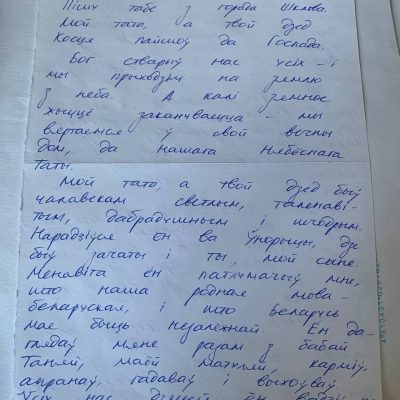 Пішу табе з горада Шклова.
Мой тата, а твой дзед
Косця пайшоў да Госпада.
Бог стварыў нас усіх – і
мы прыходзім на зямлю
з неба. А калі зямное
жыццё заканчваецца – мы
вяртаемся ў свой вечны
дом, да нашага Нябеснага
Таты.
Мой тата, а твой дзед быў
чалавекам светлым, таленаві-
тым, дабрадушным і шчодрым.
Нарадзіўся ён ва ўнорыцы, дзе
быў зачаты і ты, мой сыне.
Менавіта ён патлумачыў мне,
што наша родная мова –
беларуская, і што Беларусь
мае быць незалежнай. Ён да-
глядаў мяне разам з бабай
Таняй, маёй матуляй, карміў,
апранаў, гадаваў і выхоўваў.
Усіх нас